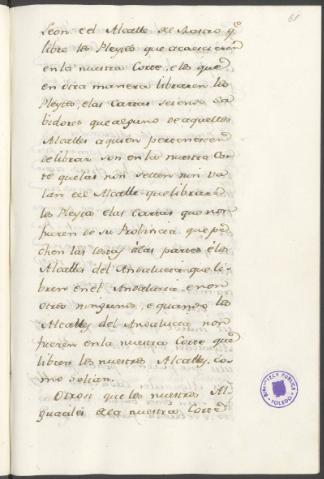 61
Leon, e el Alcalle de Rastro q.e
libre los Pleytos que acaescieren
en la nuestra Corte, e los que
en otra manera libraren los
Pleytos, e las Cartas seiendo sa
bidores que alguno de aquellos
Alcalles a quien pertenescen
de librar son en la nuestra Cor
te que las non sellen nin va
lan e el Alcalle que librare
los Pleytos e las Cartas que non
fueren de su Provincia que pe
chen las costas a las partes e los
Alcalles del Andalucia que li
bren en el Andalucia, e non
otros ningunos, e quando los
Alcalles del Andalucia non
fueren en la nuestra Corte que
libren los nuestros Alcalles, co
mo solian.
Otrosi que los nuestros Al
guaciles de la nuestra Corte
BIBLIOTECA PUBLICA
TOLEDO